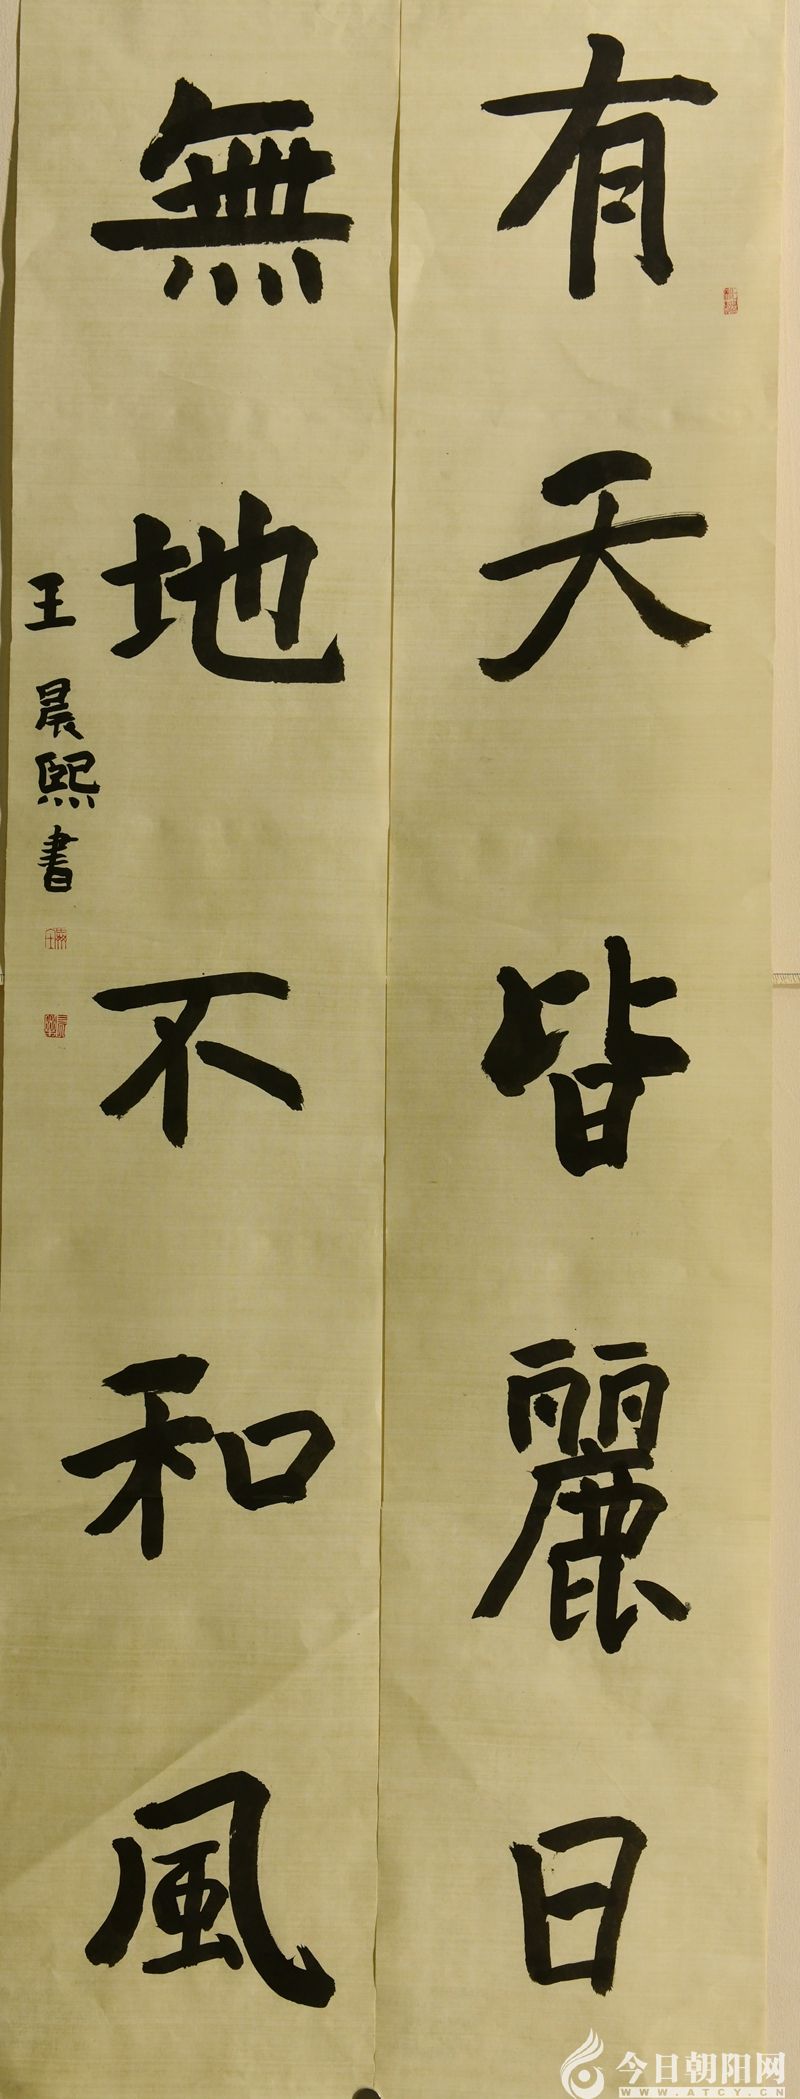 有天皆麗日
無地不和風
王晨熙書
今日朝阳网
WWW.ATCY.CN